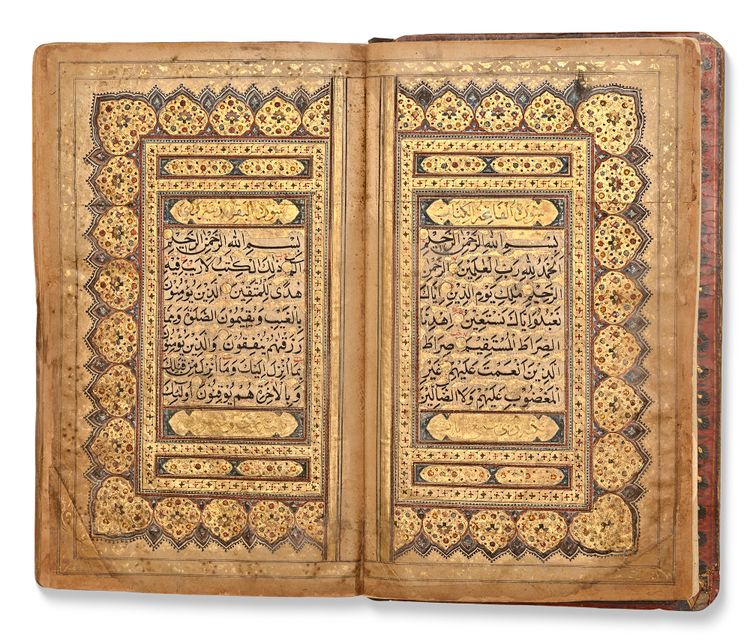 سورة الفاتحة الكتاب
بسم الله الرحمن الرحيم
الحمد لله رب العلمين الرحمن
الرحيم ملك يوم الدين اياك
نعبد واياك نستعين اهدنا
الصراط المستقيم صراط
الذين انعمت عليهم غير
المغضوب عليهم ولا الضالين
سورة البقرة
بسم الله الرحمن الرحيم
الم ذلك الكتب لا ريب فيه
هدى للمتقين الذين يؤمنون
بالغيب ويقيمون الصلوة ومما
رزقنهم ينفقون والذين يؤمنون
بما انزل اليك وما انزل من قبلك
وبالاخرة هم يوقنون اولئك